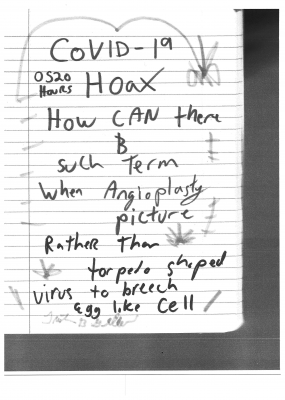 COVID-19
0520
Hours
Hoax
How CAN there
B
such Term
When Angioplasty
picture
Rather Than
torpedo shaped
virus to breech
egg like Cell